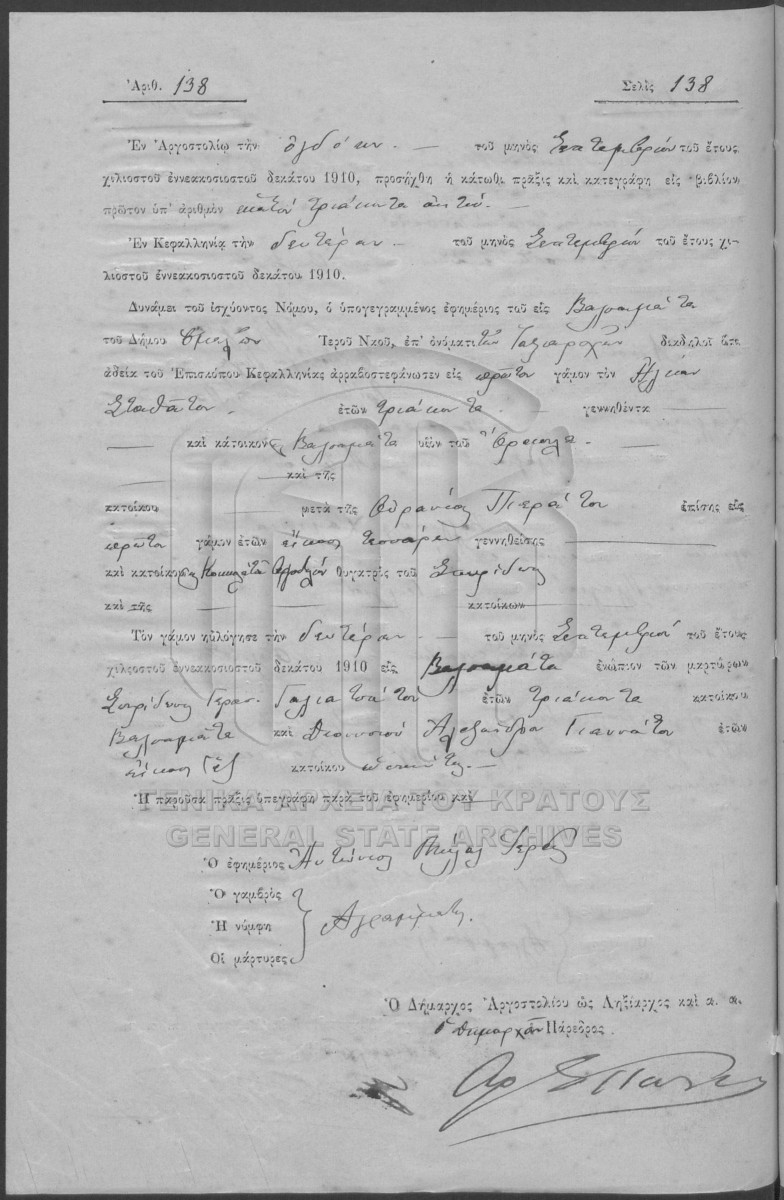 Ἀριθ. 138
Σελὶς 138
Ἐν Ἀργοστολίῳ τὴν ὀγδόην τοῦ μηνὸς Σεπτεμβρίου τοῦ ἔτους
χιλιοστοῦ ἐννεακοσιοστοῦ δεκάτου 1910, προσήχθη ἡ κάτωθι πρᾶξις καὶ κατεγράφη εἰς βιβλίον
πρῶτον ὑπ' ἀριθμὸν ἑκατὸν τριάκοντα ὀκτώ.
Ἐν Κεφαλληνίᾳ τὴν δευτέραν τοῦ μηνὸς Σεπτεμβρίου τοῦ ἔτους χι-
λιοστοῦ ἐννεακοσιοστοῦ δεκάτου 1910.
Δυνάμει τοῦ ἰσχύοντος Νόμου, ὁ ὑπογεγραμμένος ἐφημέριος τοῦ εἰς Βαλσαμάτα
τοῦ Δήμου Ὁμαλῶν Ἱεροῦ Ναοῦ, ἐπ' ὀνόματι τῶν Ταξιαρχῶν διαδηλοῖ ὅτι
ἀδείᾳ τοῦ Ἐπισκόπου Κεφαλληνίας ἀρραβοστεφάνωσεν εἰς πρῶτον γάμον τὸν
Σταθάτον ἐτῶν τριάκοντα γεννηθέντα
καὶ κάτοικον Βαλσαμάτα υἱὸν τοῦ
καὶ τῆς
κατοίκου μετὰ τῆς Οὐρανίας Πιεράτου ἐπίσης εἰς
πρῶτον γάμον ἐτῶν εἴκοσι τεσσάρων γεννηθείσης
καὶ κατοίκου Κοκολάτα θυγατρὸς τοῦ Σπυρίδωνος
καὶ τῆς κατοίκων
Τὸν γάμον ηὐλόγησε τὴν δευτέραν τοῦ μηνὸς Σεπτεμβρίου τοῦ ἔτους
χιλιοστοῦ ἐννεακοσιοστοῦ δεκάτου 1910 εἰς Βαλσαμάτα ἐνώπιον τῶν μαρτύρων
Σπυρίδωνος Γερασ. Γαλιατσάτου ἐτῶν τριάκοντα κατοίκου
Βαλσαμάτα καὶ Διονυσίου Ἀλεξάνδρου Γιαννάτου ἐτῶν
εἴκοσι ἓξ κατοίκου
Ἡ παροῦσα πρᾶξις ὑπεγράφη παρὰ τοῦ ἐφημερίου καὶ
ΓΕΝΙΚΑ ΑΡΧΕΙΑ ΤΟΥ ΚΡΑΤΟΥΣ
GENERAL STATE ARCHIVES
Ὁ ἐφημέριος Ἀντώνιος Ἱερεύς
Ὁ γαμβρὸς
Ἡ νύμφη Ἀγράμματοι.
Οἱ μάρτυρες
Ὁ Δήμαρχος Ἀργοστολίου ὡς Ληξίαρχος καὶ ἀ. ἀ.
Πάρεδρος